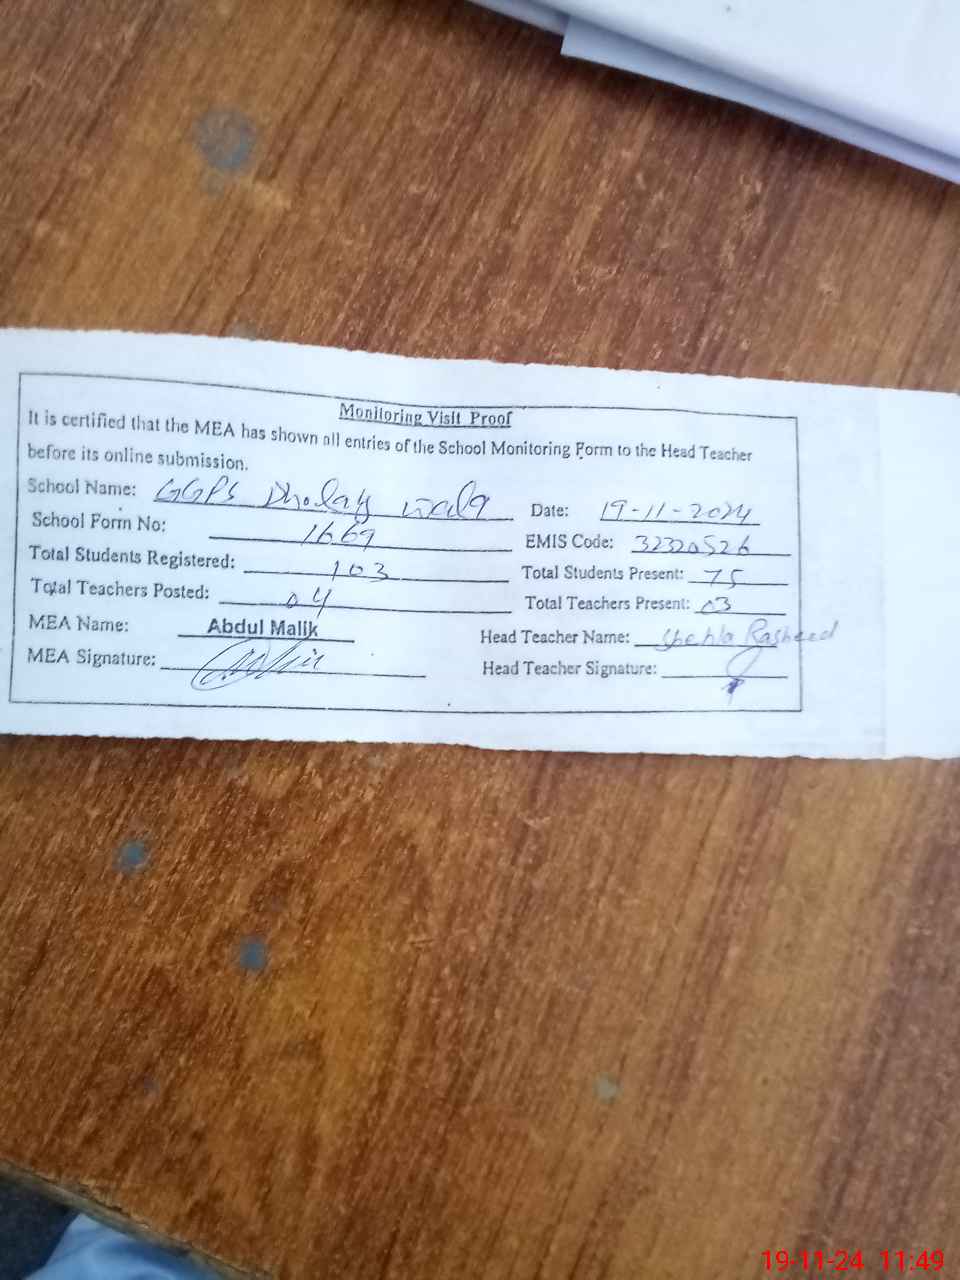 Monitoring Visit Proof
It is certified that the MEA has shown all entries of the School Monitoring Form to the Head Teacher
before its online submission.
School Name: GGPS Dholay wala Date: 19-11-2024
School Form No: 1669 EMIS Code: 32320526
Total Students Registered: 103 Total Students Present: 75
Total Teachers Posted: 04 Total Teachers Present: 03
MEA Name: Abdul Malik Head Teacher Name: Shehla Rasheed
MEA Signature: Head Teacher Signature:
19-11-24 11:49